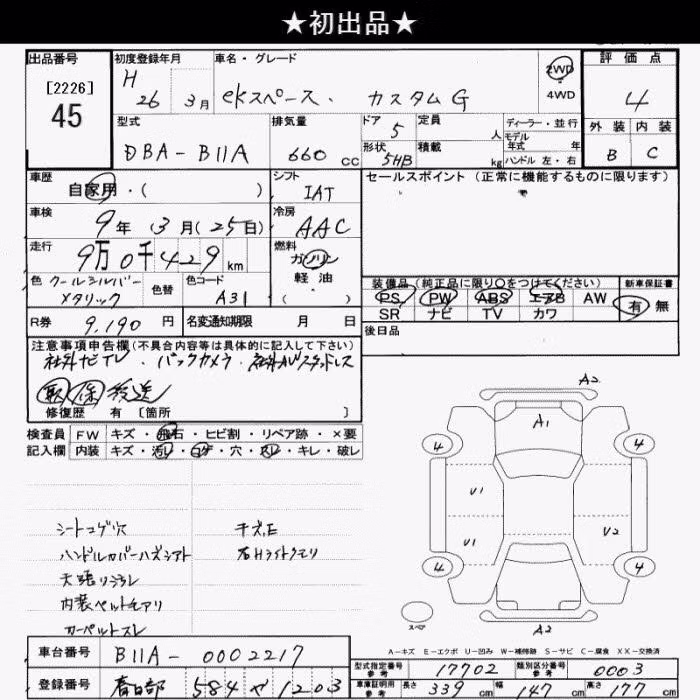 ★初出品★
出品番号 初度登録年月 車名・グレード 評価点
[2226] H 2WD
45 26 3月 ekスペース・ カスタムG 4WD 4
型式 排気量 ドア 5 定員 人 ディーラー・並行 外装 内装
モデル 年式 年
DBA-B11A 660cc 形状 5HB 積載 kg ハンドル 左・右 B C
車歴 シフト セールスポイント (正常に機能するものに限ります)
自家用・( ) IAT
車検 9年 3月(25日) 冷房 AAC
走行 9万0千429km 燃料 ガソリン
軽油
( )
色 クールシルバーメタリック 色替 色コード A31
装備品(純正品に限り○をつけてください) 新車保証書
PS PW ABS エアB AW 有 無
SR ナビ TV カワ
R券 9,190円 名変通知期限 月 日 後日品
注意事項申告欄(不具合内容等は具体的に記入して下さい)
社外ナビTV・バックカメラ・社外AVスタッドレス
取 保 発送
修復歴 有〔箇所 〕
検査員 FW キズ・飛石・ヒビ割・リペア跡・×要
記入欄 内装 キズ・汚レ・コゲ・穴・スレ・キレ・破レ
A2
A1
4 4
V1
V1 V2
4 4
スペア
A2
シートコゲ穴
ハンドルカバーハズシアト
天張リヨゴレ
内装ペット毛アリ
カーペットスレ
キズ、E
右Hライトクモリ
A-キズ E-エクボ U-凹み W-補修跡 S-サビ C-腐食 XX-交換済
車台番号 B11A-0002217 型式指定番号 参考 17702 類別区分番号 参考 0003
登録番号 春日部 584 や 1203 車庫証明用 参考 長さ 339cm 幅 147cm 高さ 177cm